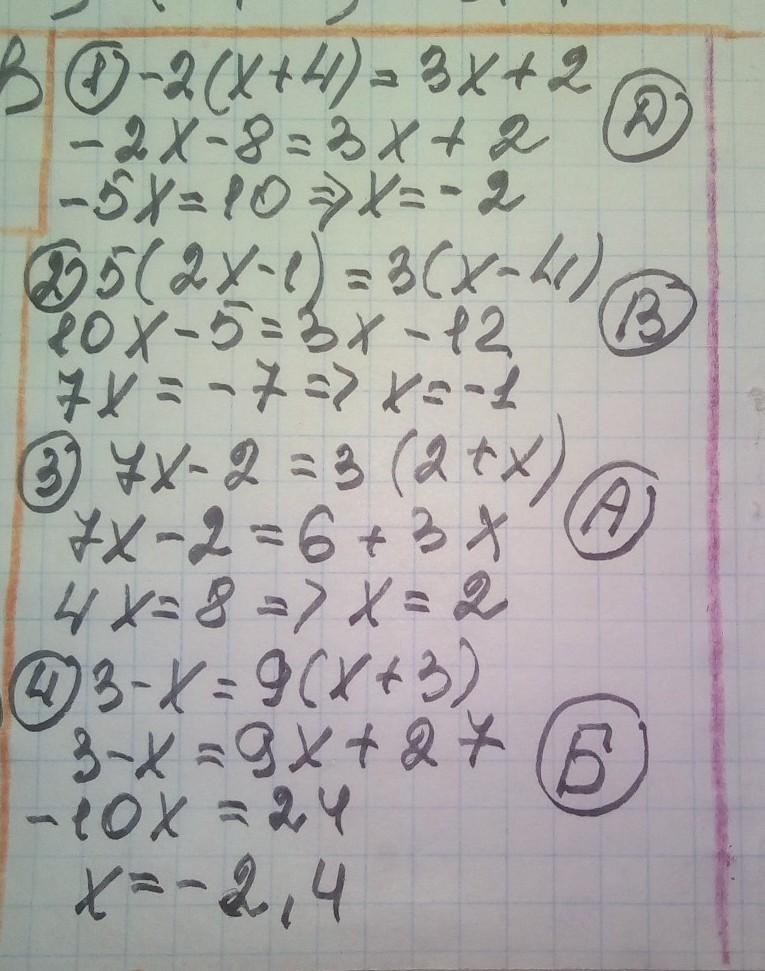 В ① -2(x+4)=3x+2
-2x-8=3x+2 Д
-5x=10=>x=-2
② 5(2x-1)=3(x-4)
10x-5=3x-12 В
7x=-7=>x=-1
③ 7x-2=3(2+x)
7x-2=6+3x А
4x=8=>x=2
④ 3-x=9(x+3)
3-x=9x+27 Б
-10x=24
x=-2,4